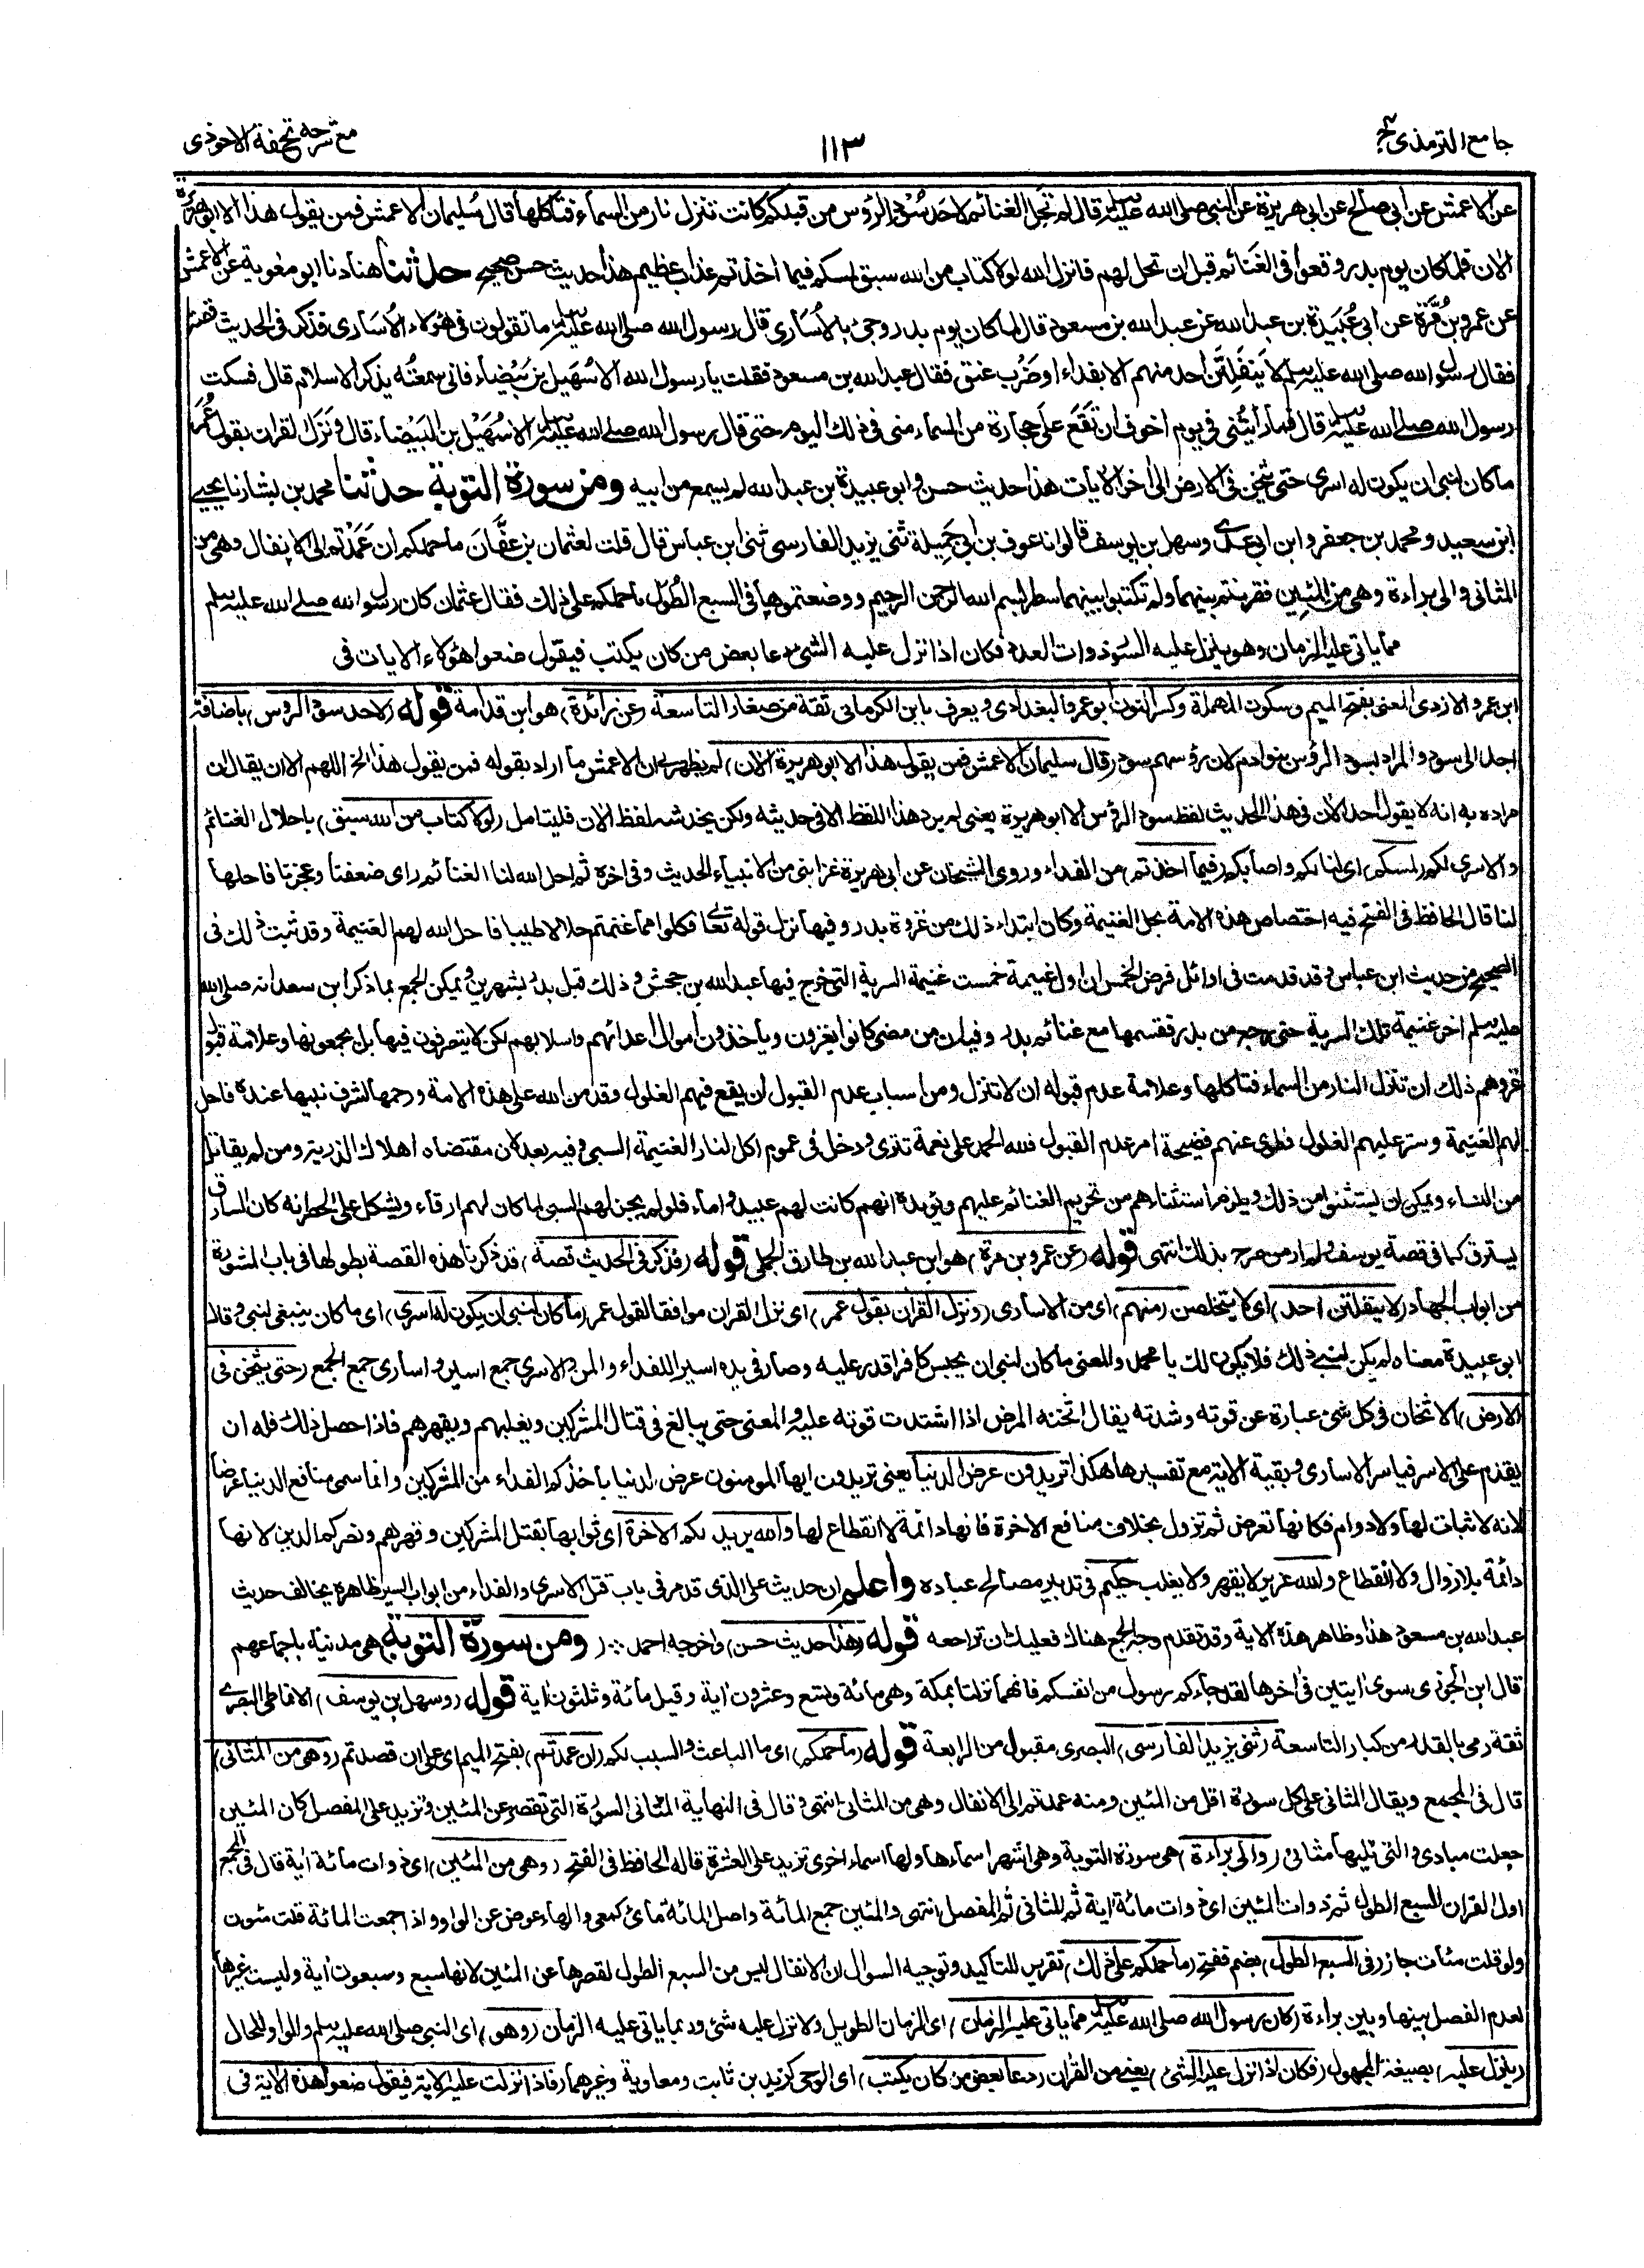 جامع الترمذي ج٤
١١٣
مع شرحه تحفة الاحوذى
عن الاعمش عن ابي صالح عن ابى هريرة عن النبى صلى الله عليه وسلم قال لم تحل الغنائم لاحد سُوْدِ الرؤس من قبلكم كانت تنزل نار من السماء فتاكلها قال سُليمان الاعمش فمن يقول هذا الا ابو هريرة
الان فلما كان يوم بدر وقعوا فى الغنائم قبل ان تحل لهم فانزل الله لولا كتاب من الله سبق لمسكم فيما اخذتم عذاب عظيم هذا حديث حسن صحيح حدثنا هناد نا ابو معٰوية عن الاعمش
عن عمرو بن مُرَّة عن ابى عُبَيدة بن عبد الله عن عبد الله بن مسعود قال لما كان يوم بدر وجئ بالأسارى قال رسول الله صلى الله عليه وسلم ما تقولون فى هؤلاء الأسارى فذكر فى الحديث قصة
فقال رسول الله صلى الله عليه وسلم لا يَنفَلِتَنَّ أحد منهم الا بفداء او ضَرْب عنق فقال عبد الله بن مسعود فقلت يا رسول الله الا سُهَيل بن بَيْضاء فانى سمعتُه يذكر الاسلام قال فسكت
رسول الله صلے الله عليه وسلم قال فما رأيتُنى فى يوم أخوف ان تقَع علَىَّ حجارة من السماء منى فى ذلك اليوم حتى قال رسول الله صلے الله عليه وسلم الا سُهَيْل بن البَيْضاء قال ونَزَل القرآن بقول عُمَر
ما كان لنبى ان يكون له اسرى حتى يثخن فى الارض الى اخر الايات هذا حديث حسن وابو عبيدة بن عبد الله لم يسمع من ابيه ومن سورة التوبة حدثنا محمد بن بشار نا يحيے
ابن سعيد ومحمد بن جعفر وابن ابى عدے وسهل بن يوسف قالوا نا عوف بن ابى جَمِيلة ثنى يزيد الفارسى ثنى ابن عباس قال قلت لعثمان بن عفَّان ما حملكم ان عَمَدْتُم الى الانفال وهى من
المثانى والى براءة وهى من المئين فقرنتم بينهما ولم تكتبوا بينهما سطر بسم الله الرحمن الرحيم ووضعتموها فى السبع الطُوَل ما حملكم على ذلك فقال عثمان كان رسول الله صلے الله عليه وسلم
مما ياتى عليه الزمان وهو ينزل عليه السور ذوات العدد فكان اذا نزل عليه الشئ دعا بعض من كان يكتب فيقول ضعوا هؤلاء الايات فى
ابن عمرو الازدى المعنى بفتح الميم وسكون المهملة وكسر النون ابو عمرو البغدادى ويعرف بابن الكرمانى ثقة من صغار التاسعة (عن زائدة) هو ابن قدامة قوله (لاحد سود الرؤس) باضافة
احد الى سود والمراد بسود الرؤس بنو ادم لان رؤسهم سود (قال سليمان الاعمش فمن يقول هذا الا ابو هريرة الان) لم يظهر لى ان الاعمش ما اراد بقوله فمن يقول هذا الخ اللهم الا ان يقال ان
مراده به انه لا يقول احد الان فى هذا الحديث لفظ سود الرؤس الا ابو هريرة يعنى لم يرد هذا اللفظ الا فى حديثه ولكن يخدشه لفظ الان فليتامل (لولا كتاب من الله سبق) باحلال الغنائم
والاسرى لكم (لمسكم) اى لنالكم واصابكم (فيما اخذتم) من الفداء وروى الشيخان عن ابى هريرة غزا نبى من الانبياء الحديث وفى اخره ثم احل الله لنا الغنائم راى ضعفنا وعجزنا فاحلها
لنا قال الحافظ فى الفتح فيه اختصاص هذه الامة بحل الغنيمة وكان ابتداء ذلك من غزوة بدر وفيها نزل قوله تعالى فكلوا مما غنمتم حلالا طيبا فاحل الله لهم الغنيمة وقد ثبت ذلك فى
الصحيح من حديث ابن عباس وقد قدمت فى اوائل فرض الخمس ان اول غنيمة خمست غنيمة السرية التى خرج فيها عبد الله بن جحش وذلك قبل بدر بشهرين ويمكن الجمع بما ذكر ابن سعد انه صلى الله
عليه وسلم اخر غنيمة تلك السرية حتى رجع من بدر فقسمها مع غنائم بدر وفيه ان من مضى كانوا يغزون وياخذون اموال اعدائهم واسلابهم لكن لا يتصرفون فيها بل يجمعونها وعلامة قبول
غزوهم ذلك ان تنزل النار من السماء فتاكلها وعلامة عدم قبوله ان لا تنزل ومن اسباب عدم القبول ان يقع فيهم الغلول وقد من الله على هذه الامة ورحمها لشرف نبيها عنده فاحل
لهم الغنيمة وستر عليهم الغلول فطوى عنهم فضيحة امر عدم القبول فلله الحمد على نعمة تترى ودخل فى عموم اكل النار الغنيمة السبى وفيه بعد لان مقتضاه اهلاك الذرية ومن لم يقاتل
من النساء ويمكن ان يستثنوا من ذلك ويلزم استثناءهم من تحريم الغنائم عليهم ويؤيده انهم كانت لهم عبيد واماء فلو لم يجز لهم السبى لما كان لهم ارقاء ويشكل على الحصر انه كان السارق
يسترق كما فى قصة يوسف ولم ار من صرح بذلك انتهى قوله (عن عمرو بن مرة) هو ابن عبد الله بن طارق الجملى قوله (فذكر فى الحديث قصة) قد ذكرنا هذه القصة بطولها فى باب المشورة
من ابواب الجهاد (لا ينفلتن احد) اى لا يتخلصن (منهم) اى من الاسارى (ونزل القران بقول عمر) اى نزل القران موافقا لقول عمر (ما كان لنبى ان يكون له اسرى) اى ما كان ينبغى لنبى وقال
ابو عبيدة معناه لم يكن لنبى ذلك فلا يكون لك يا محمد والمعنى ما كان لنبى ان يحبس كافرا قدر عليه وصار فى يده اسيرا للفداء والمن والاسرى جمع اسير واسارى جمع الجمع (حتى يثخن فى
الارض) الاثخان فى كل شئ عبارة عن قوته وشدته يقال اثخنه المرض اذا اشتدت قوته عليه والمعنى حتى يبالغ فى قتال المشركين ويغلبهم ويقهرهم فاذا حصل ذلك فله ان
يقدم على الاسر فياسر الاسارى وبقية الاية مع تفسيرها هكذا تريدون عرض الدنيا يعنى تريدون ايها المومنون عرض الدنيا باخذكم الفداء من المشركين وانما سمى منافع الدنيا عرضا
لانه لا ثبات لها ولا دوام فكانها تعرض ثم تزول بخلاف منافع الاخرة فانها دائمة لا انقطاع لها والله يريد لكم الاخرة اى ثوابها بقتل المشركين وقهرهم ونصركم الدين لانها
دائمة بلا زوال ولا انقطاع والله عزيز لا يقهر ولا يغلب حكيم فى تدبير مصالح عباده واعلم ان حديث على الذى قد مر فى باب قتل الاسرى والفداء من ابواب السير ظاهره يخالف حديث
عبد الله بن مسعود هذا وظاهر هذه الاية وقد تقدم وجه الجمع هناك فعليك ان تراجعه قوله (هذا حديث حسن) واخرجه احمد (ومن سورة التوبة) هى مدنية باجماعهم
قال ابن الجوزى سوى ايتين فى اخرها لقد جاءكم رسول من انفسكم فانهما نزلتا بمكة وهى مائة وتسع وعشرون اية وقيل مائة وثلثون اية قوله (وسهل بن يوسف) الانماطى البصرے
ثقة رمى بالقدر من كبار التاسعة (ثنى يزيد الفارسى) البصرى مقبول من الرابعة قوله (ما حملكم) اى ما الباعث والسبب لكم (ان عمدتم) بفتح الميم اى على ان قصدتم (وهى من المثانى)
قال فى المجمع ويقال المثانى على كل سورة اقل من المئين ومنه عمدتم الى الانفال وهى من المثانى انتهى وقال فى النهاية المثانى السورة التى تقصر عن المئين وتزيد على المفصل كان المئين
جعلت مبادى والتى تليها مثانى (والى براءة) هى سورة التوبة وهى اشهر اسماءها ولها اسماء اخرى تزيد على العشرة قاله الحافظ فى الفتح (وهى من المئين) اى ذوات مائة اية قال فى المجمع
اول القران السبع الطول ثم ذوات المئين اى ذوات مائة اية ثم المثانى ثم المفصل انتهى والمئين جمع المائة واصل المائة مأئ كمعى والهاء عوض عن الواو واذا جمعت المائة قلت مئون
ولو قلت مئات جاز (فى السبع الطول) بضم ففتح (ما حملكم على ذلك) تقرير للتاكيد وتوجيه السوال ان الانفال ليس من السبع الطول لقصرها عن المئين لانها سبع وسبعون اية وليست غيرها
لعدم الفصل بينها وبين براءة (كان رسول الله صلى الله عليه وسلم مما ياتى عليه الزمان) اى الزمان الطويل ولا نزل عليه شئ وربما ياتى عليه الزمان (وهو) اى النبى صلى الله عليه وسلم والواو للحال
(ينزل عليه) بصيغة المجهول (فكان اذا نزل عليه الشئ) يعنى من القران (دعا بعض من كان يكتب) اى الوحى كزيد بن ثابت ومعاوية وغيرهما (فاذا نزلت عليه الاية فيقول ضعوا هذه الاية فى